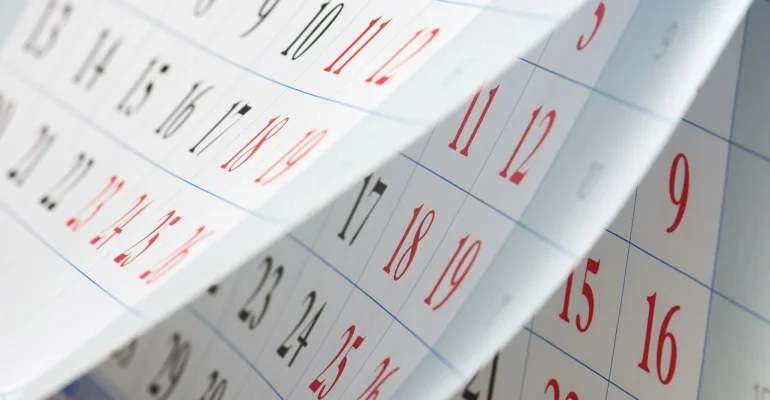 9 10 11 12
13 14 15 16 17 18 19
21 22 23 24 25 26
5
11 12
17 18 19
23 24 25 26
29 30
9
15 16